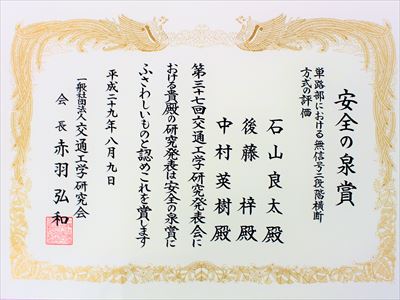 安全の泉賞
単路部における無信号二段階横断
方式の評価
石山良太殿
後藤梓殿
中村英樹殿
第三十七回交通工学研究発表会に
おける貴殿の研究発表は安全の泉賞に
ふさわしいものと認めこれを賞します
平成二十九年八月九日
一般社団法人交通工学研究会
会長赤羽弘和